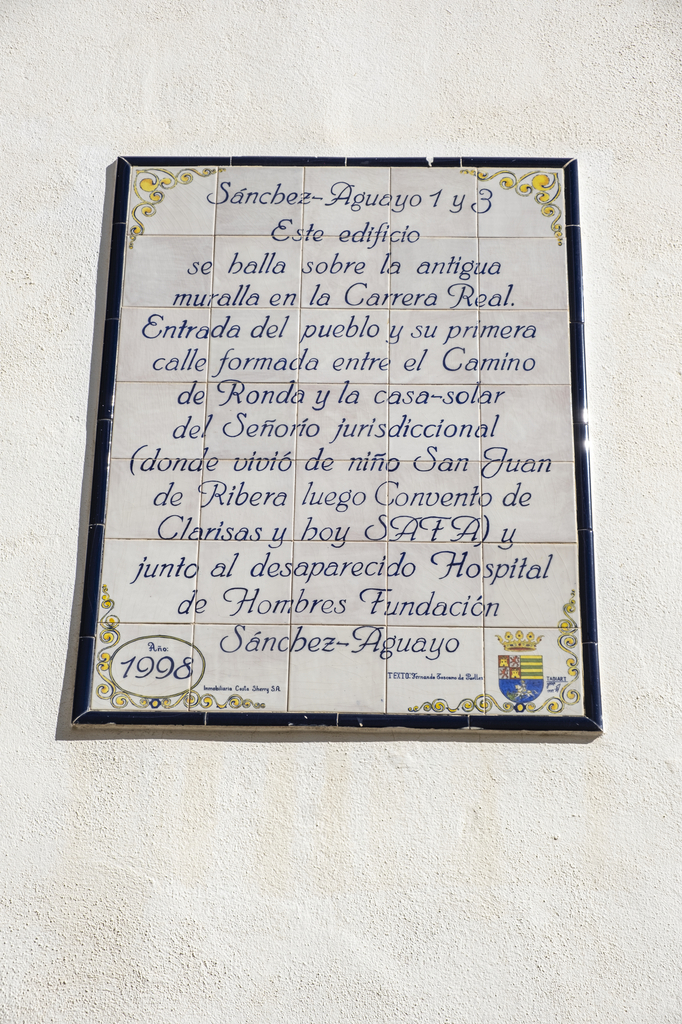 Sánchez-Aguayo 1 y 3
Este edificio
se halla sobre la antigua
muralla en la Carrera Real.
Entrada del pueblo y su primera
calle formada entre el Camino
de Ronda y la casa-solar
del Señorío jurisdiccional
(donde vivió de niño San Juan
de Ribera luego Convento de
Clarisas y hoy SAFA) y
junto al desaparecido Hospital
de Hombres Fundación
Sánchez-Aguayo
Año:
1998
Inmobiliaria Costa Sherry S.A.
TEXTO: Fernando Toscano de Puelles
TABIART